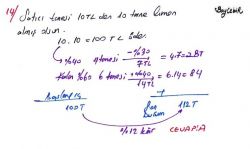 14/ Satıcı tanesi 10TL den 10 tane limon
almış olsun.
10.10 = 100 TL öder.
%40 4 tanesi %30 7TL 4.7=28T
Kalan %60 6 tanesi %40 14TL 6.14=84
Başlangıç
100T
Son
durum
112T
%12 kâr
CEVAP:A